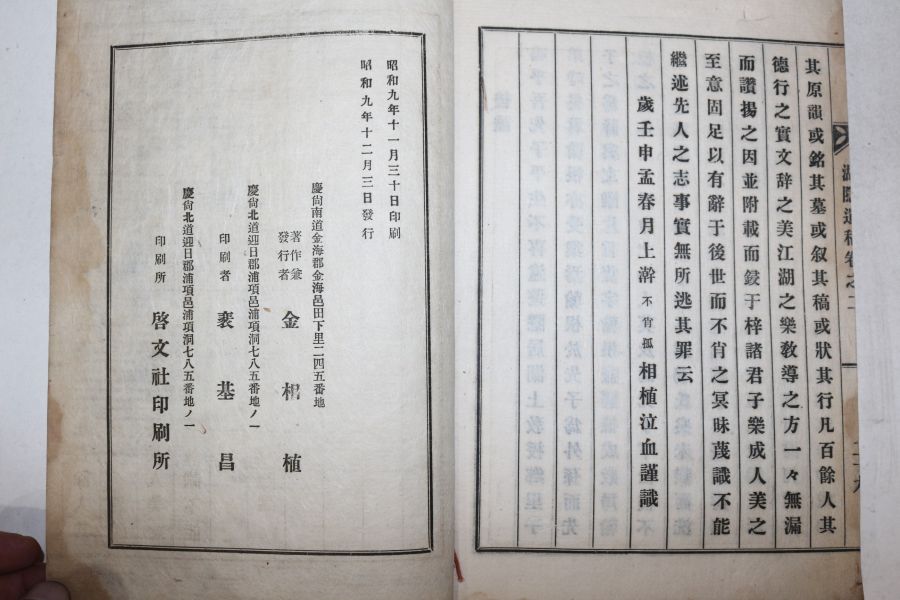 遺稿卷之二
其原韻或銘其墓或叙其稿或狀其行凡百餘人其
德行之實文辞之美江湖之樂敎導之方一々無漏
而讚揚之因並附載而鋟于梓諸君子樂成人美之
至意固足以有辭于後世而不肖之冥昧蔑識不能
繼述先人之志事實無所逃其罪云
歲壬申孟春月上澣 不肖孤 相植泣血謹識
昭和九年十一月三十日印刷
昭和九年十二月三日發行
慶尙南道金海郡金海邑田下里二四五番地
著作兼發行者 金相植
慶尙北道迎日郡浦項邑浦項洞七八五番地ノ一
印刷者 裵基昌
慶尙北道迎日郡浦項邑浦項洞七八五番地ノ一
印刷所 啓文社印刷所